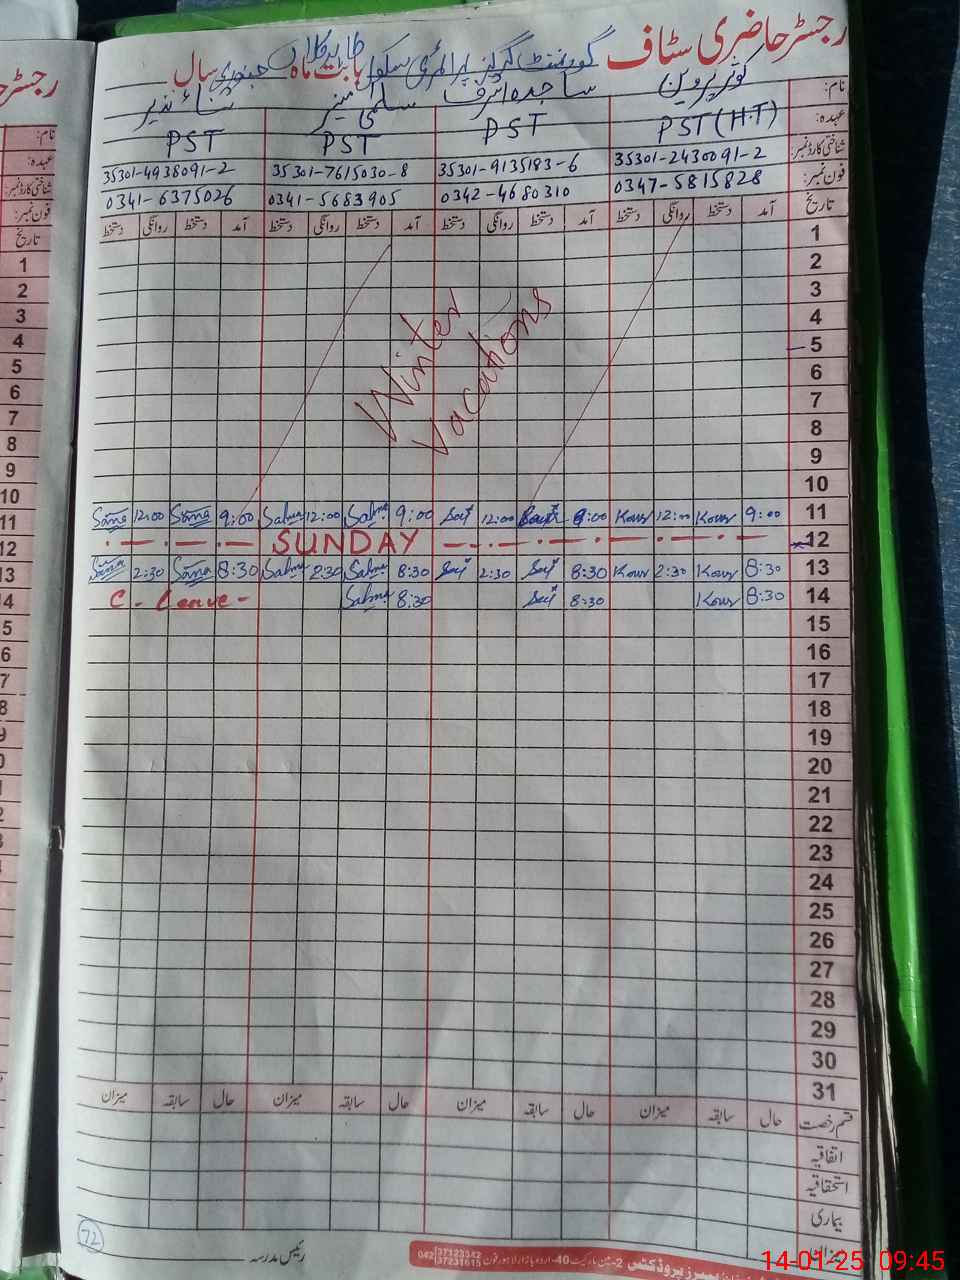 رجسٹر حاضری سٹاف گورنمنٹ گرلز پرائمری سکول بابت ماہ جنوری سال
نام: کوثر پروین ساجدہ اشرف سلمیٰ منیر ثناء نذیر
عہدہ: PST (H.T) PST PST PST
شناختی کارڈ نمبر: 35301-2430091-2 35301-9135183-6 35301-7615030-8 35301-4938091-2
فون نمبر: 0347-5815828 0342-4680310 0341-5683905 0341-6375026
تاریخ آمد دستخط روانگی دستخط آمد دستخط روانگی دستخط آمد دستخط روانگی دستخط آمد دستخط روانگی دستخط
1
2
3
4
5
6
7
8
9
10
Winter
Vacations
11 9:00 Kour 12:00 Kour 9:00 12:00 9:00 Salma 12:00 Salma 9:00 Sana 12:00 Sana
12 SUNDAY
13 8:30 Kour 2:30 Kour 8:30 2:30 8:30 Salma 2:30 Salma 8:30 Sana 2:30 Sana
14 8:30 Kour 8:30 8:30 Salma C - Leave -
15
16
17
18
19
20
21
22
23
24
25
26
27
28
29
30
31
قسم رخصت حال سابقہ میزان حال سابقہ میزان حال سابقہ میزان حال سابقہ میزان
اتفاقیہ
استحقاقیہ
بیماری
میزان
72
رئیس مدرسہ
042 37123342
37231615
نام:
عہدہ:
شناختی کارڈ نمبر:
فون نمبر:
تاریخ
1
2
3
4
5
6
7
8
9
10
11
12
13
14-01-25 09:45